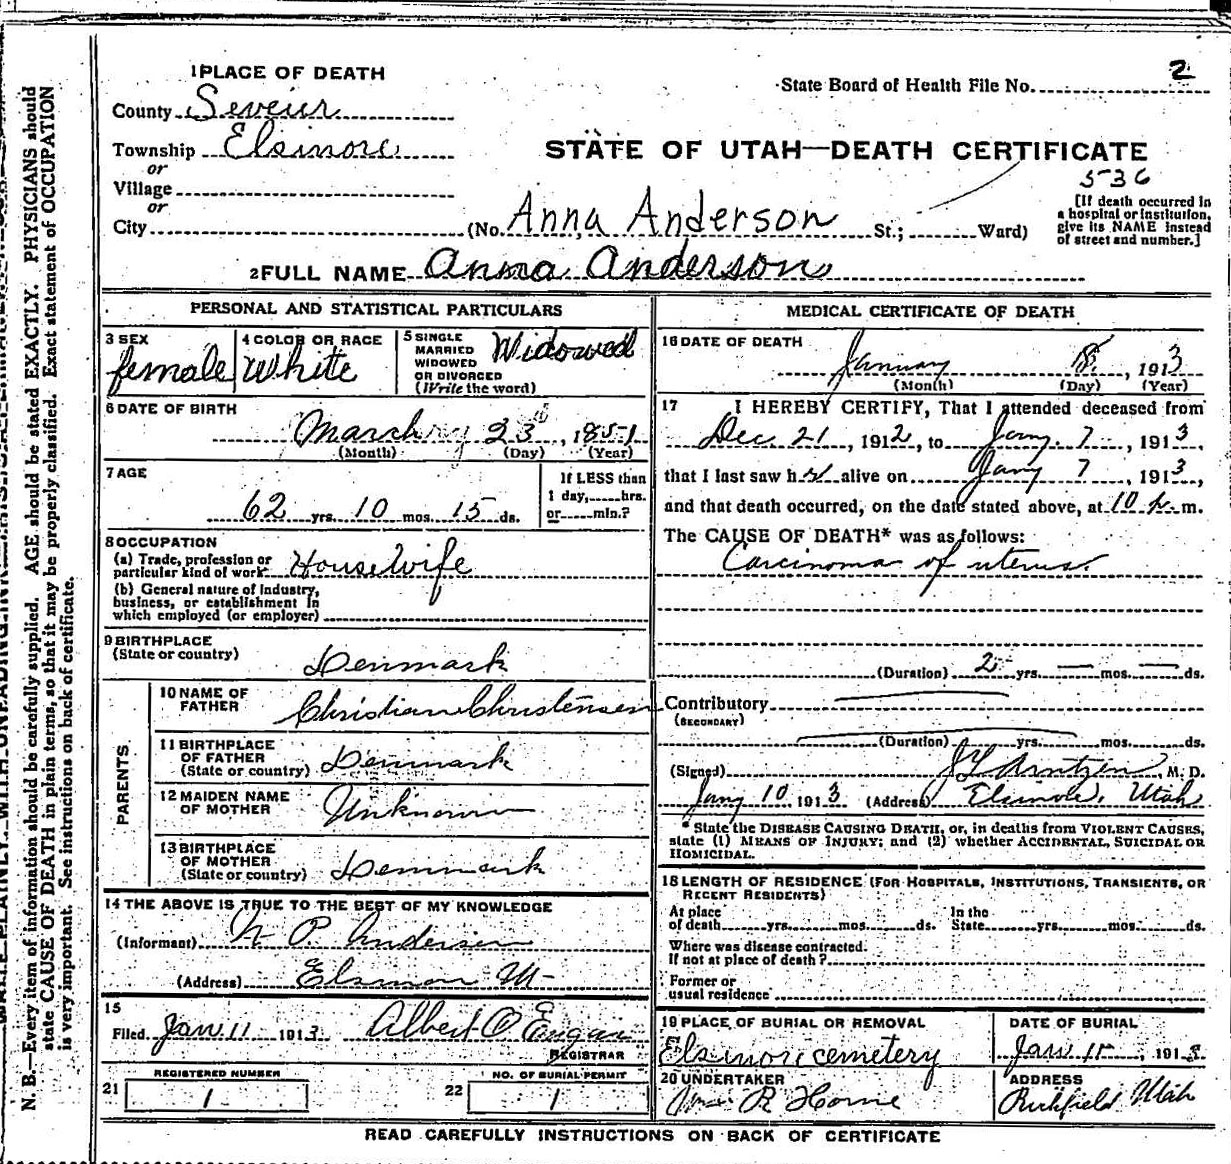 1 PLACE OF DEATH
State Board of Health File No. 2
County Seveir
Township Elsinore
STATE OF UTAH—DEATH CERTIFICATE
or
Village
536
or
City (No. Anna Anderson St.; Ward)
[If death occurred in
a hospital or institution,
give its NAME instead
of street and number.]
2 FULL NAME Anna Anderson
PERSONAL AND STATISTICAL PARTICULARS
3 SEX
female
4 COLOR OR RACE
White
5 SINGLE
MARRIED
WIDOWED
OR DIVORCED
(Write the word)
Widowed
6 DATE OF BIRTH
March 23, 1851
(Month) (Day) (Year)
7 AGE
62 yrs. 10 mos. 15 ds.
If LESS than
1 day, hrs.
or min.?
8 OCCUPATION
(a) Trade, profession or
particular kind of work Housewife
(b) General nature of Industry,
business, or establishment in
which employed (or employer)
9 BIRTHPLACE
(State or country) Denmark
PARENTS
10 NAME OF
FATHER Christian Christensen
11 BIRTHPLACE
OF FATHER
(State or country) Denmark
12 MAIDEN NAME
OF MOTHER Unknown
13 BIRTHPLACE
OF MOTHER
(State or country) Denmark
14 THE ABOVE IS TRUE TO THE BEST OF MY KNOWLEDGE
(Informant) P. Andersen
(Address)
15
Filed Jan. 11 1913 Albert O
REGISTRAR
REGISTERED NUMBER
21 1
NO. OF BURIAL PERMIT
22 1
MEDICAL CERTIFICATE OF DEATH
16 DATE OF DEATH
January 8, 1913
(Month) (Day) (Year)
17 I HEREBY CERTIFY, That I attended deceased from
Dec. 21, 1912, to Jany. 7, 1913
that I last saw her alive on Jany 7, 1913,
and that death occurred, on the date stated above, at 10 m.
The CAUSE OF DEATH* was as follows:
Carcinoma of uterus.
(Duration) 2 yrs. — mos. — ds.
Contributory
(SECONDARY)
(Duration) yrs. mos. ds.
(Signed) Arntzen, M. D.
Jany 10 1913 (Address) Elsinore, Utah
* State the DISEASE CAUSING DEATH, or, in deaths from VIOLENT CAUSES,
state (1) MEANS OF INJURY; and (2) whether ACCIDENTAL, SUICIDAL OR
HOMICIDAL.
18 LENGTH OF RESIDENCE (FOR HOSPITALS, INSTITUTIONS, TRANSIENTS, OR
RECENT RESIDENTS)
At place
of death yrs. mos. ds.
In the
State yrs. mos. ds.
Where was disease contracted.
If not at place of death?
Former or
usual residence
19 PLACE OF BURIAL OR REMOVAL
Elsinore cemetery
DATE OF BURIAL
Jan 11, 1913
20 UNDERTAKER
R Horne
ADDRESS
Richfield Utah
READ CAREFULLY INSTRUCTIONS ON BACK OF CERTIFICATE
N. B.—Every item of information should be carefully supplied. AGE should be stated EXACTLY. PHYSICIANS should
state CAUSE OF DEATH in plain terms, so that it may be properly classified. Exact statement of OCCUPATION
is very important. See instructions on back of certificate.